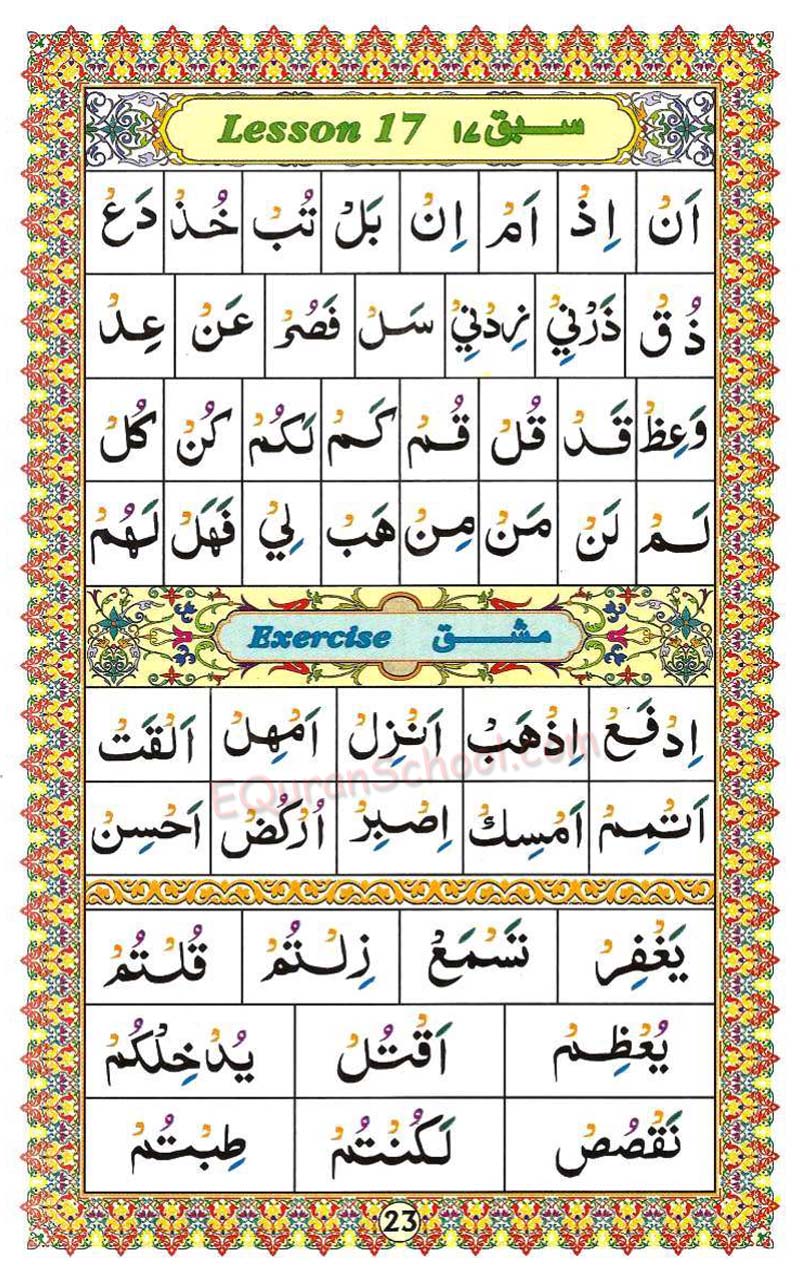 Lesson 17 سبق ۱۷
اَنْ اِذْ اَمْ اِنْ بَلْ تُبْ خُذْ دَعْ
ذُقْ ذَرْنِيْ زِدْنِيْ سَلْ فَصُرْ عَنْ عِدْ
وَعِظْ قَدْ قُلْ قُمْ كَمْ لَكُمْ كُنْ كُلْ
لَمْ لَنْ مَنْ مِنْ هَبْ لِيْ فَهَلْ لَهُمْ
Exercise مشق
اِدْفَعْ اِذْهَبْ اَنْزِلْ اَمْهِلْ اَلْقَتْ
EQuranSchool.com
اَتْمِمْ اَمْسِكْ اِصْبِرْ اُرْكُضْ اَحْسِنْ
يَغْفِرْ تَسْمَعْ زِلْتُمْ قُلْتُمْ
يُعْظِمْ اَقْتُلْ يُدْخِلْكُمْ
نَقْصُصْ لَكُنْتُمْ طِبْتُمْ
23